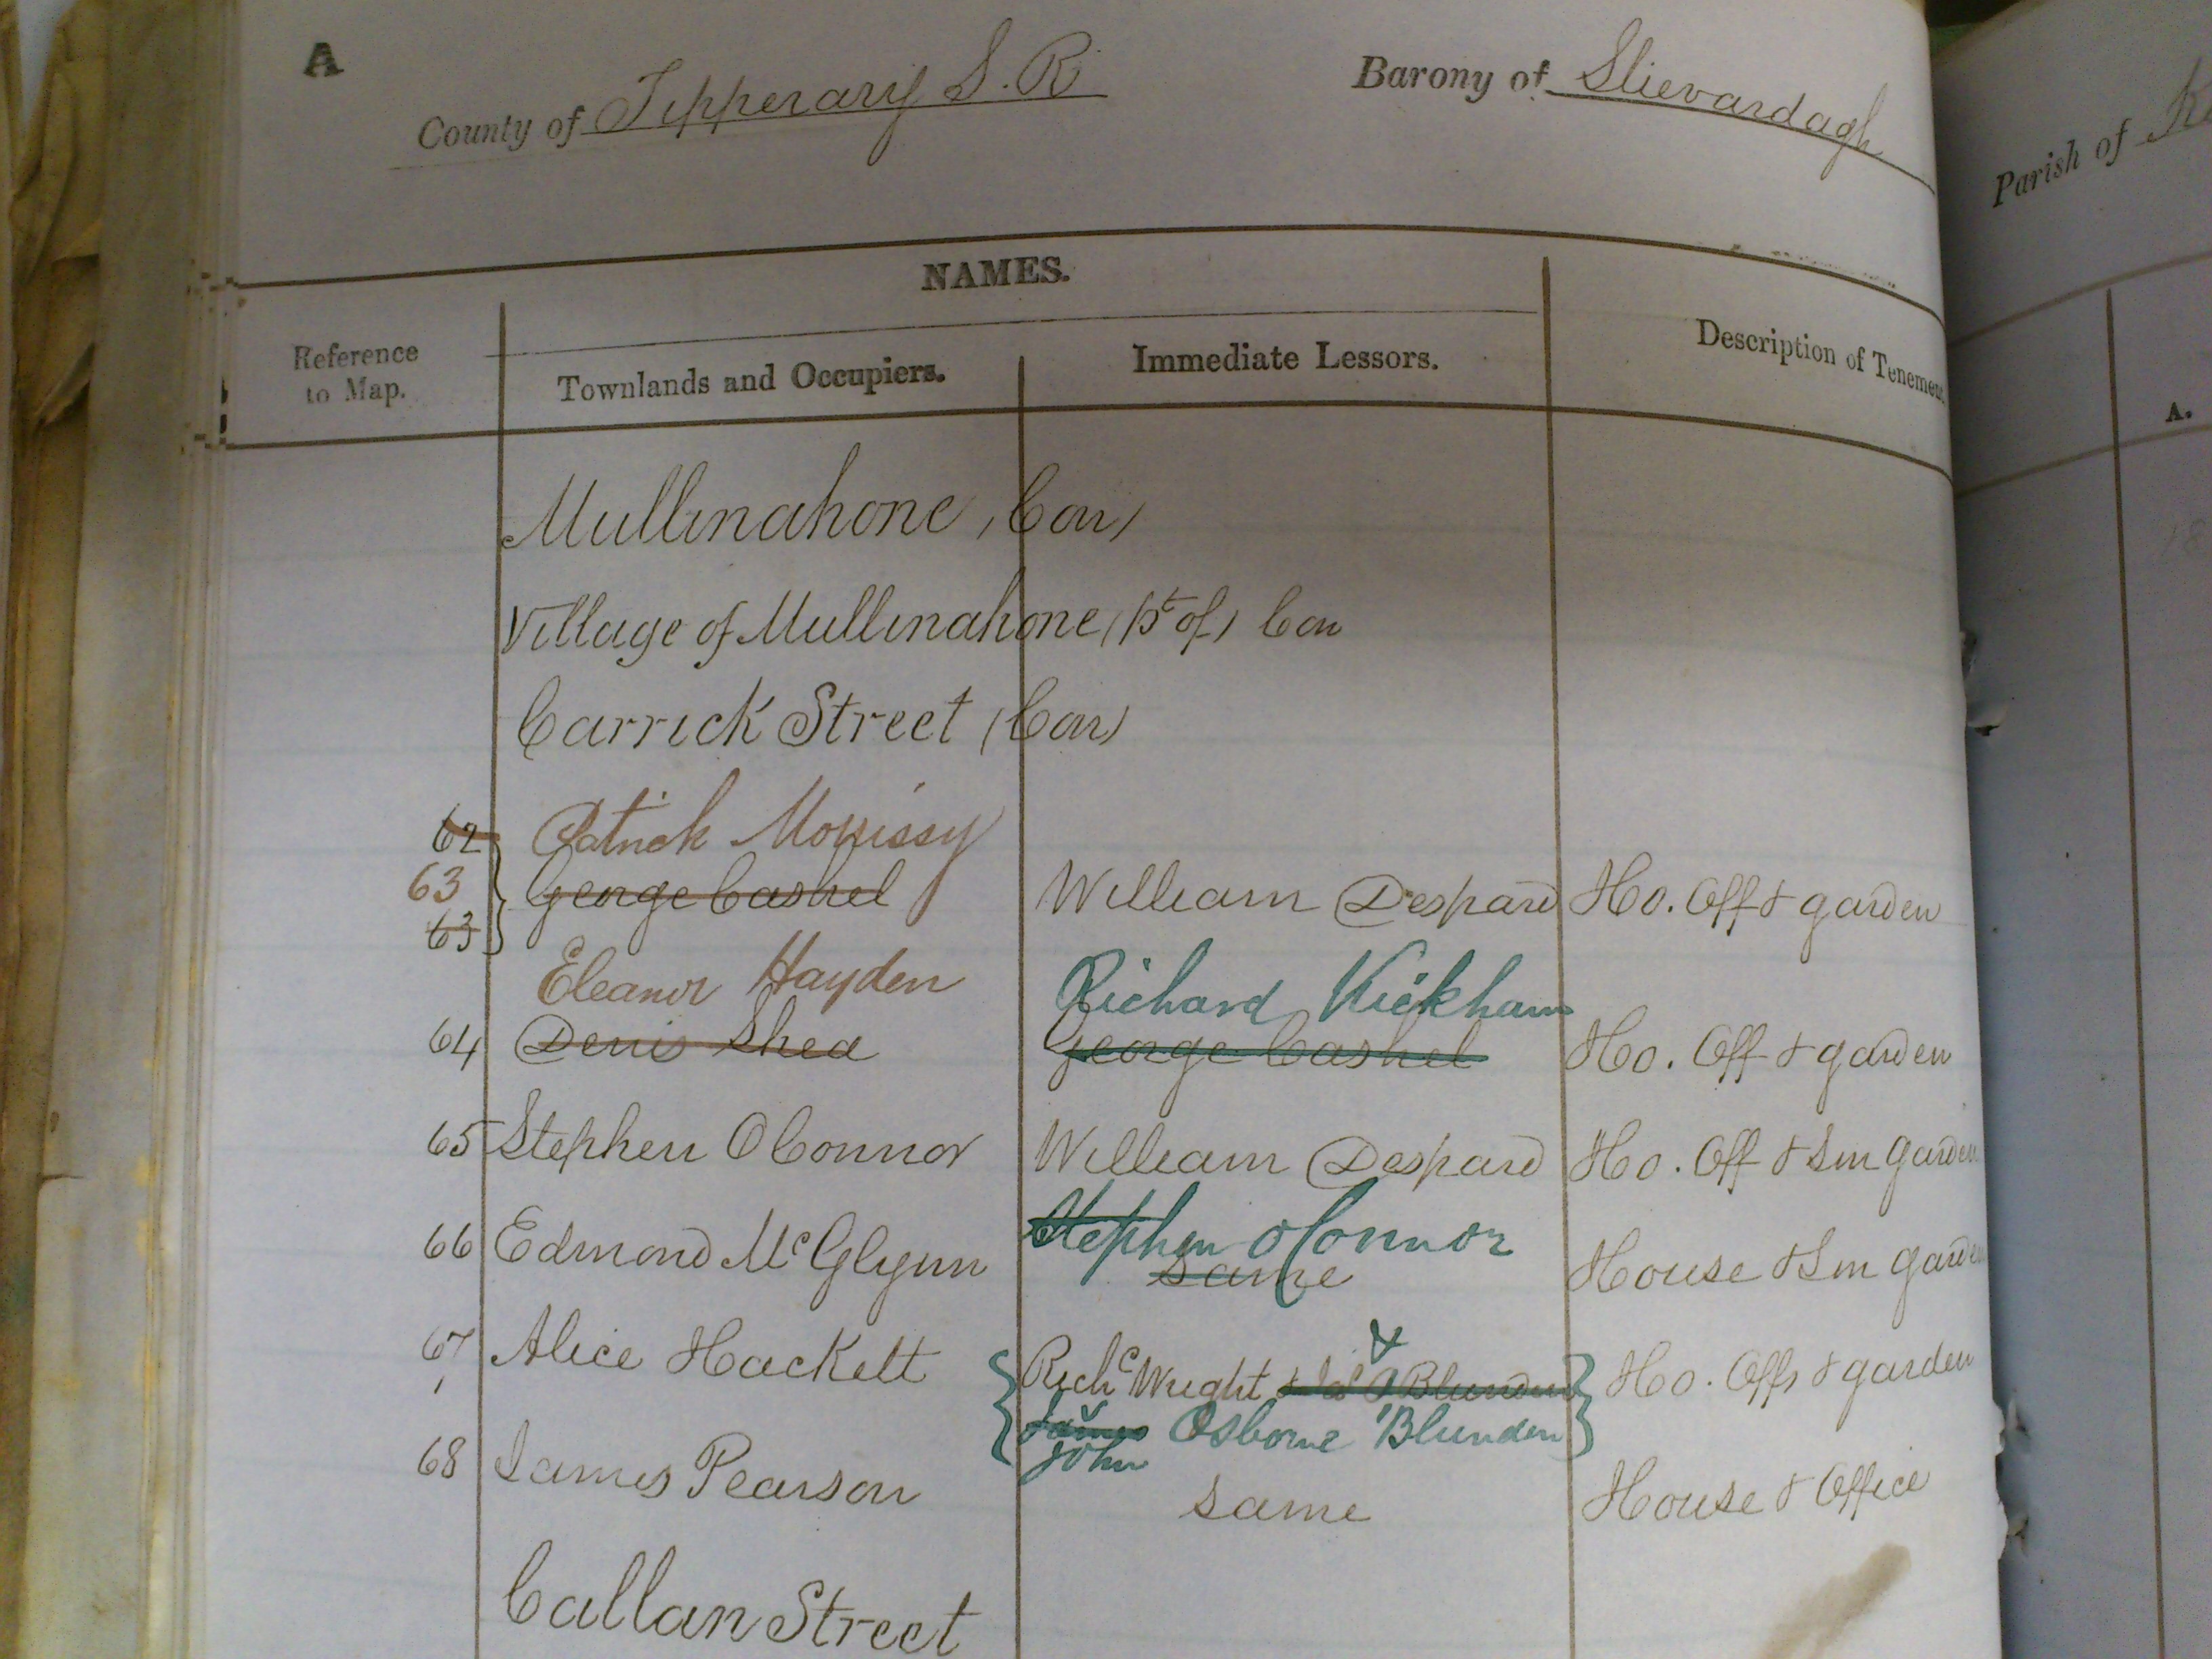 A
County of Tipperary S. R
Barony of Slievardagh
Parish of
NAMES.
Reference to Map.
Townlands and Occupiers.
Immediate Lessors.
Description of Tenement.
A.
Mullinahone (Con)
Village of Mullinahone (pt of) Con
Carrick Street (Con)
62 Patrick Morrissy
63 George Cashel William Despard Ho. Off & garden
63
Eleanor Hayden Richard Kickham
64 Denis Shea George Cashel Ho. Off & garden
65 Stephen OConnor William Despard Ho. Off & Sm garden
66 Edmond McGlynn Stephen OConnor House & Sm garden
same
67 Alice Hackett Richd Wright & Blunden Ho. Offs & garden
James Osborne Blunden
John
68 James Pearson same House & Office
Callan Street